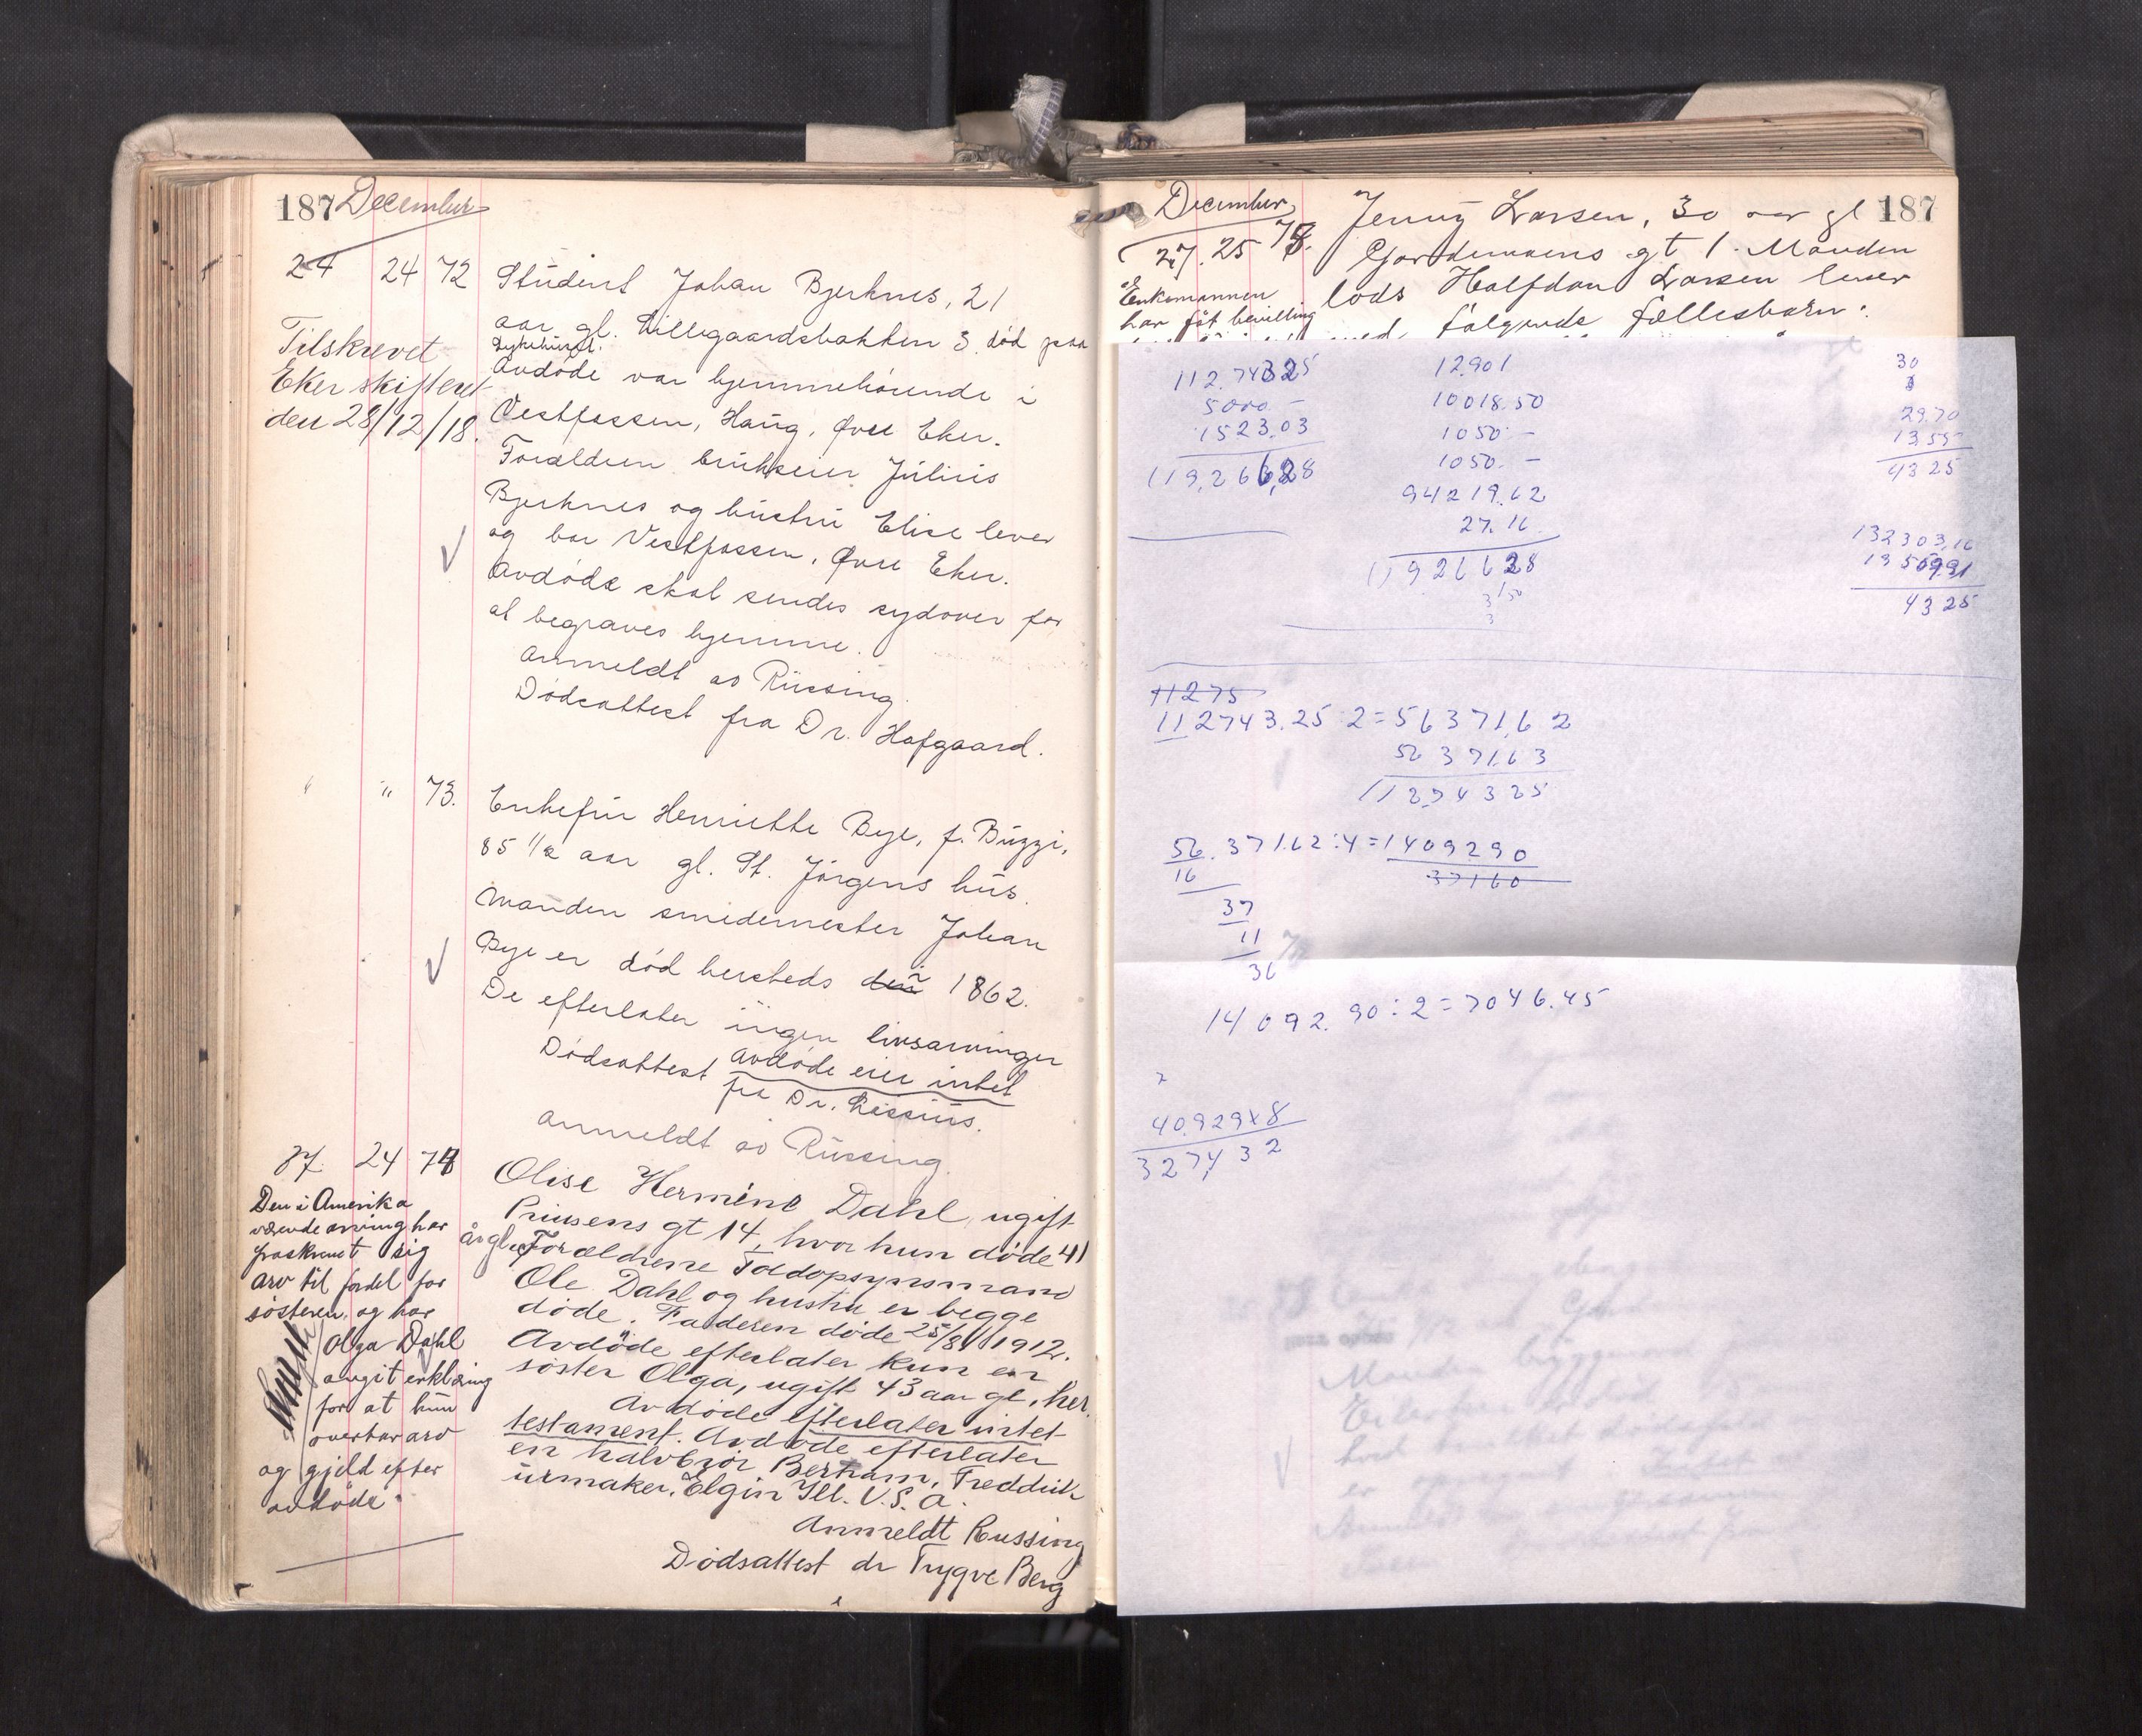 187 December
24 24 72 Student Johan Bjerknes, 21
aar gl. Lillegaardsbakken 3. død paa
Sykehuset.
Avdøde var hjemmehørende i
Vestfossen, Haug, Øvre Eker.
Forældren brukseier Júlíus
Bjerknes og hústrú Elise lever
og bor Vestfossen, Øvre Eker.
Avdøde skal sendes sydover for
at begraves hjemme.
Anmeldt av Rüssing.
Dødsattest fra Dr. Hofgaard.
Tilskrevet
Eker skifteret
den 28/12/18.
" " 73. Enkefrú Henriette Bye, f. Búzzi,
85 1/2 aar gl. St. Jörgens hús.
Manden smedemester Johan
Bye er död hersteds i 1862.
De efterlater ingen livsarvinger
Avdöde eier intet
Dödsattest fra Dr. Lissiús.
Anmeldt av Rússing.
27. 24 74 Olise Hermine Dahl, ugift
Prinsens gt 14, hvor hun døde 41
år gl. Forældrene Toldopsynsmand
Ole Dahl og hustru er begge
døde. Faderen døde 25/8 1912.
Avdøde efterlater kun en
søster Olga, ugift 43 aar gl, her.
Avdøde efterlater intet
testament. Avdøde efterlater
en halvbror Bertram, Freddrik
urmaker, Elgin Ill. U.S.A.
Anmeldt Russing
Dødsattest dr Trygve Berg
Den i Amerika
værende arving har
fraskrevet sig
arv til fordel for
søsteren, og har
Olga Dahl
avgit erklæring
for at hun
overtar arv
og gjeld efter
avdøde.
December 187
27. 25 75. Jenny Larsen, 30 aar gl
Gardemoens gt 1. Manden
lods Halfdan Larsen lever
med følgende fællesbarn:
Enkemannen
har fåt bevilling
112.74325
5000 –
1523.03
119,266,28
12901
10018.50
1050 –
1050. –
94219.62
27.16
11926628
30
29.70
13.55
43 25
132303,16
4325
11275
112743.25:2=56371,62
5637163
11274325
56.371.62:4=1409290
37160
16
37
11
36
14092.90:2=7046.45
40.929x8
327432